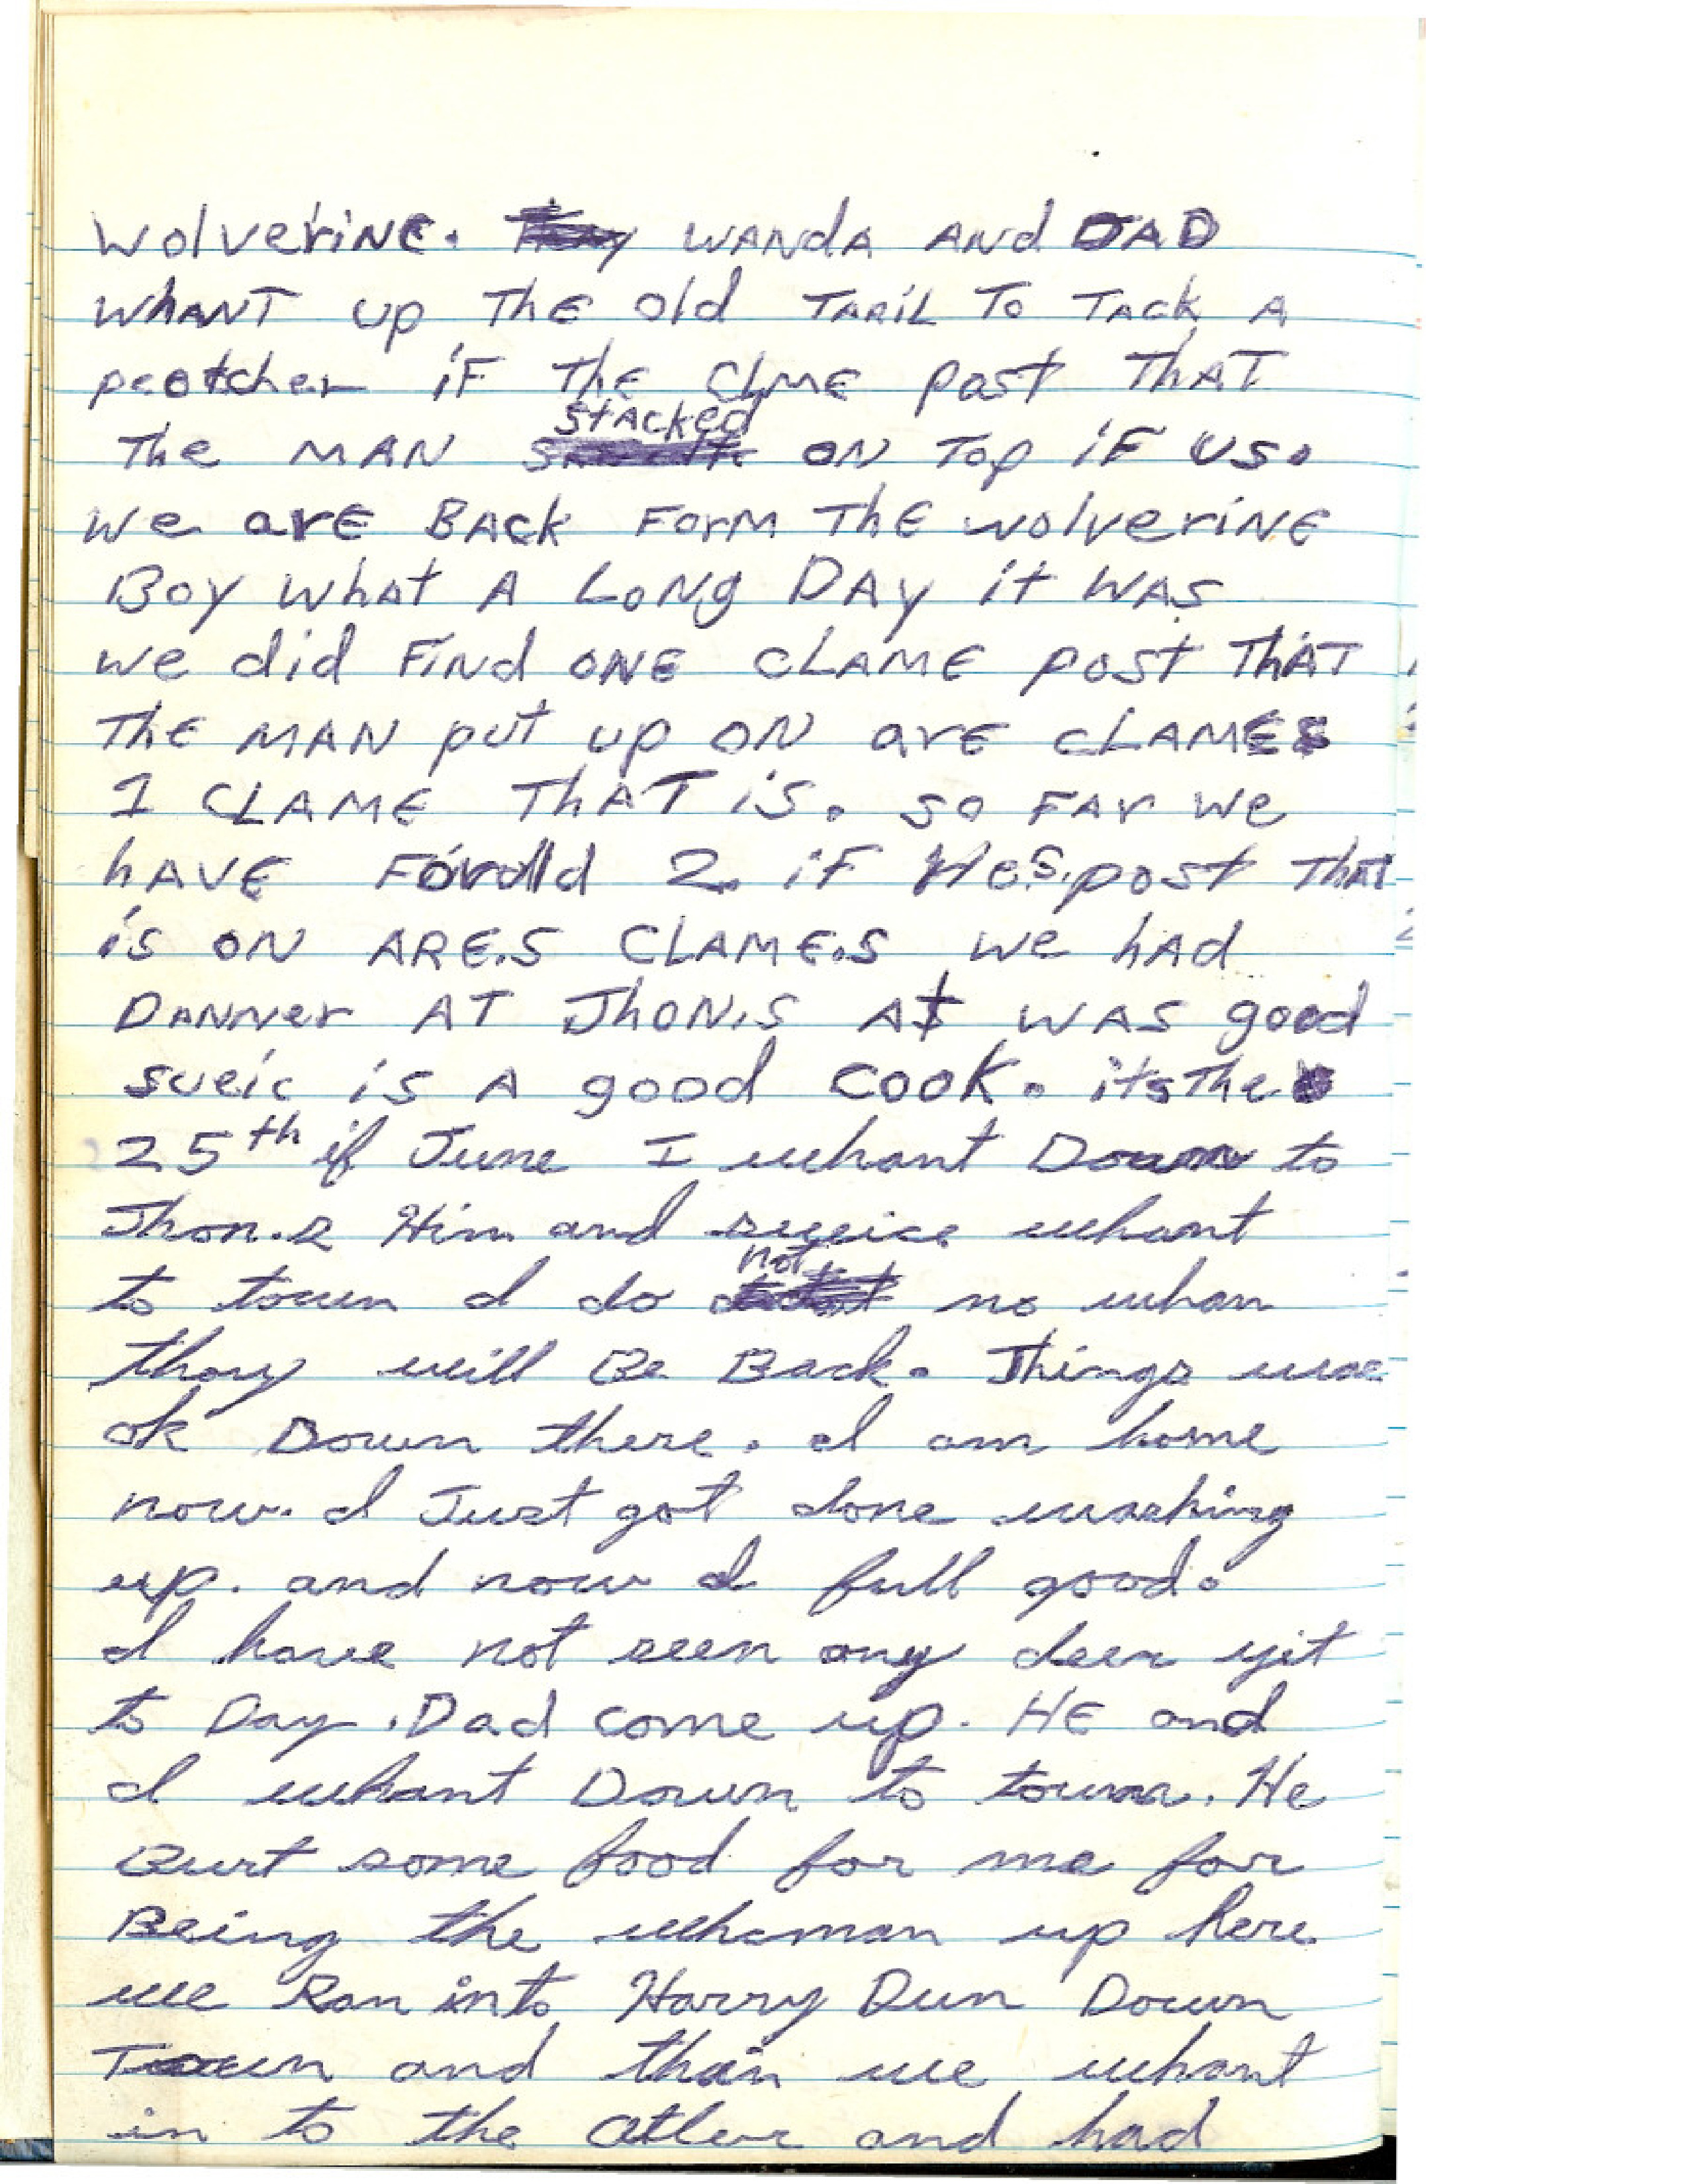 Wolverine. Wanda And DAD
whant up the old Taril To Tack A
peotcher iF The Clme post That
The MAN stacked ON Top iF us.
we are Back Form The wolverine
Boy what A Long Day it was
we did Find one clame post That
The MAN put up ON are clames
1 Clame That is. so Far we
have Found 2. iF He.s. post That
is ON ARE.S CLAME.S we had
Danner AT Jhon.s At was good
sueic is A good cook. its The
25th if June I whant Down to
Jhon.s Him and sueice whant
to town I do not no whan
thay will Be Back. Things wae
ok Down there. I am home
now. I Just got done washing
up. and now I full good.
I have not seen any deer yit
to Day. Dad come up. HE and
I whant Down to town. He
Burt some food for me for
Being the whaman up here
we Ran into Harry Dun Down
Town and than we whant
in to the Atler and had